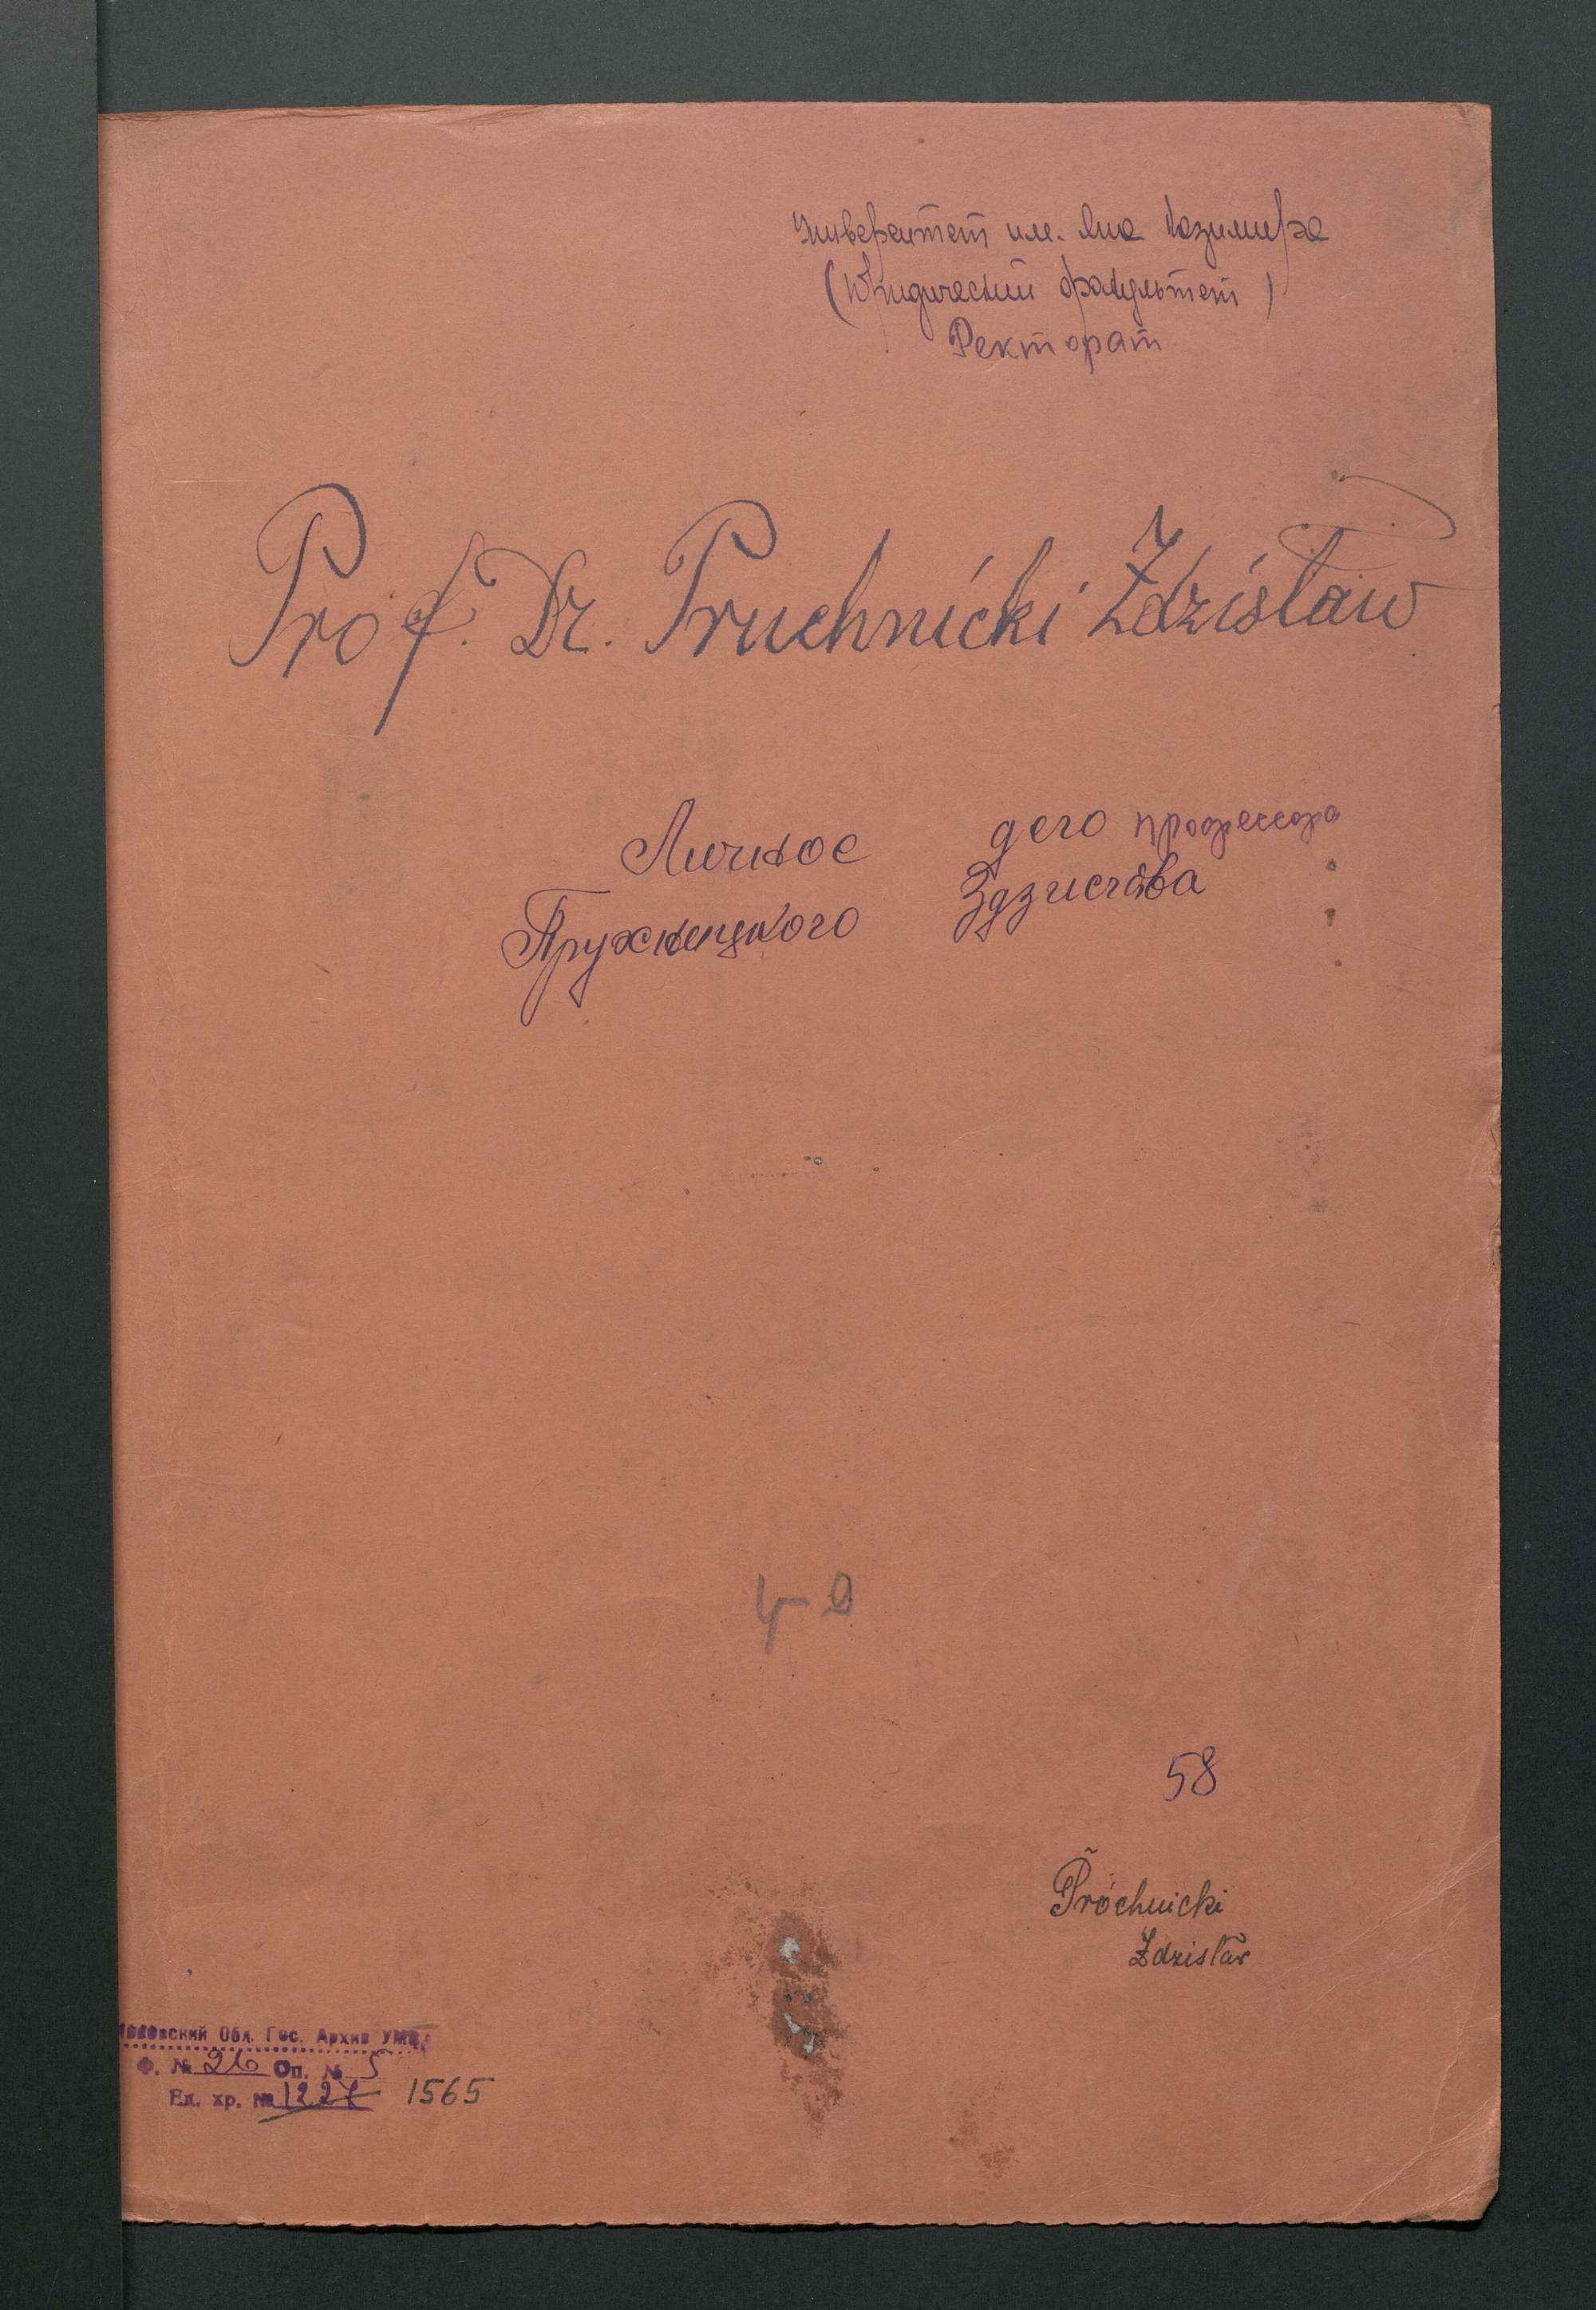 Университет им. Яна Казимира
(Юридический факультет)
Ректорат
Prof. Dr. Pruchnicki Zdzisław
Личное дело профессора
Пружницкого Здзислава
58
Próchnicki
Zdzisław
Львовский Обл. Гос. Архив УМВД
Ф. № 26 Оп. № 5
Ед. хр. № 1227 1565